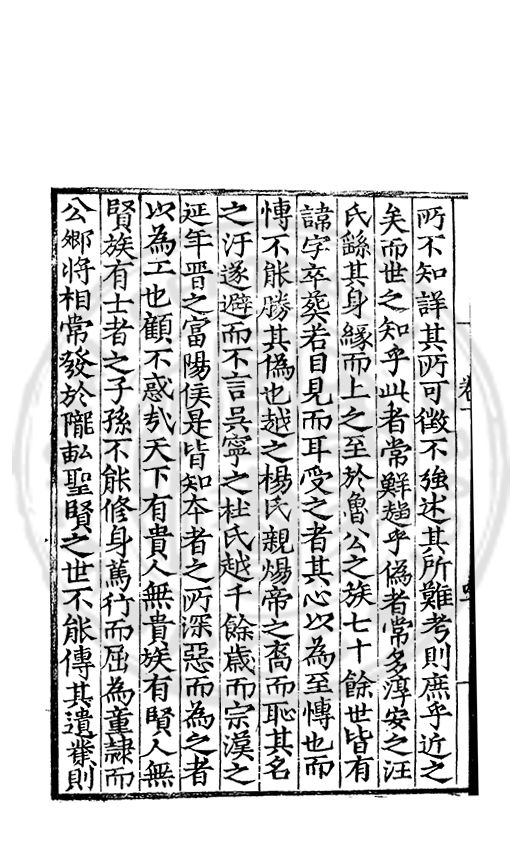 所不知詳其所可徵不強述其所難考則庶乎近之
矣而世之知乎此者常鮮趨乎偽者常多淳安之汪
氏繇其身緣而上之至於魯公之族七十餘世皆有
諱字卒葬若目見而耳受之者其心以為至慱也而
慱不能勝其偽也越之楊氏親煬帝之裔而恥其名
之汙遂避而不言吳寧之杜氏越千餘歲而宗漢之
延年晋之富陽侯是皆知本者之所深惡而為之者
以為工也顧不惑㢤天下有貴人無貴族有賢人無
賢族有士者之子孫不能修身篤行而屈為童隷而
公卿將相常發於隴畝聖賢之世不能傳其遺業則
卷一